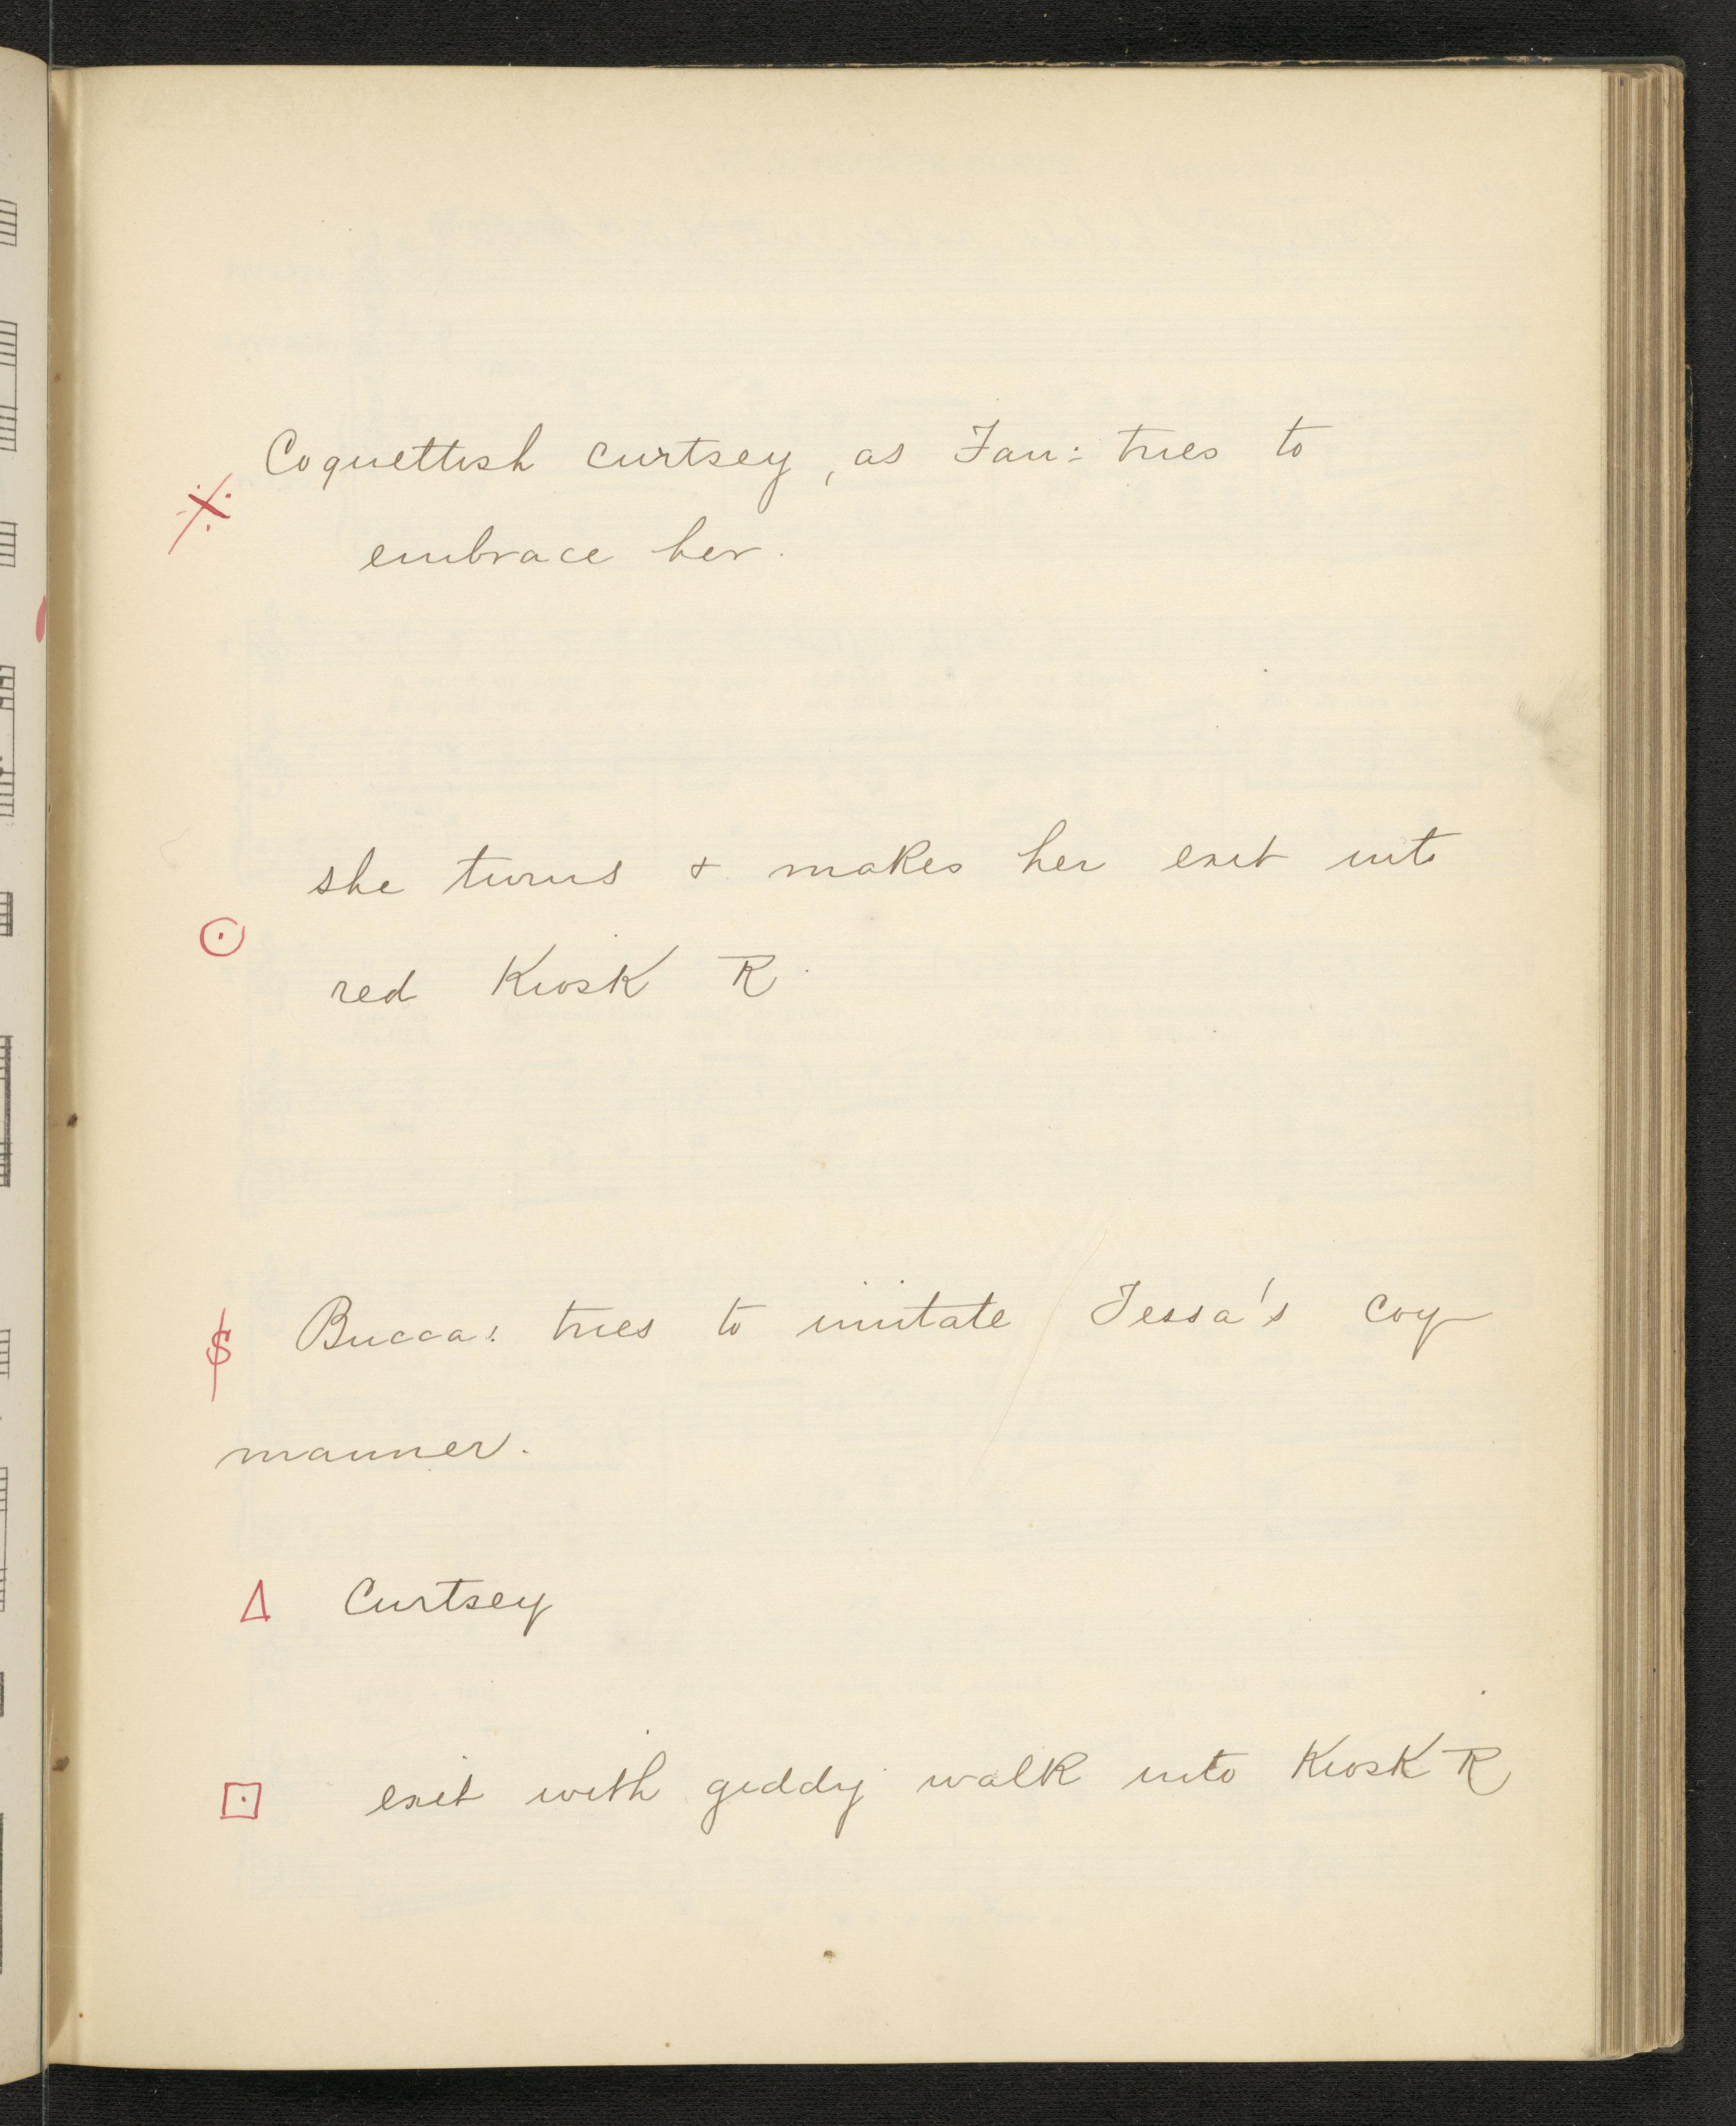 ※ Coquettish curtsey, as Fan: tries to
embrace her.
she turns & makes her exit into
⊙ red Kiosk R.
$ Bucca: tries to imitate Tessa's coy
manner.
Δ Curtsey
⊡ exit with giddy walk into Kiosk R